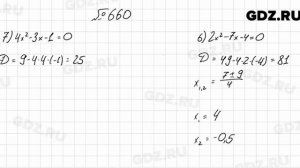 GDZ.RU
№660
7) 4x²-3x-1=0
D=9-4·4·(-1)=25
б) 2x²-7x-4=0
D=49-4·2·(-4)=81
x₁,₂=7±9/4
x₁=4
x₂=-0,5